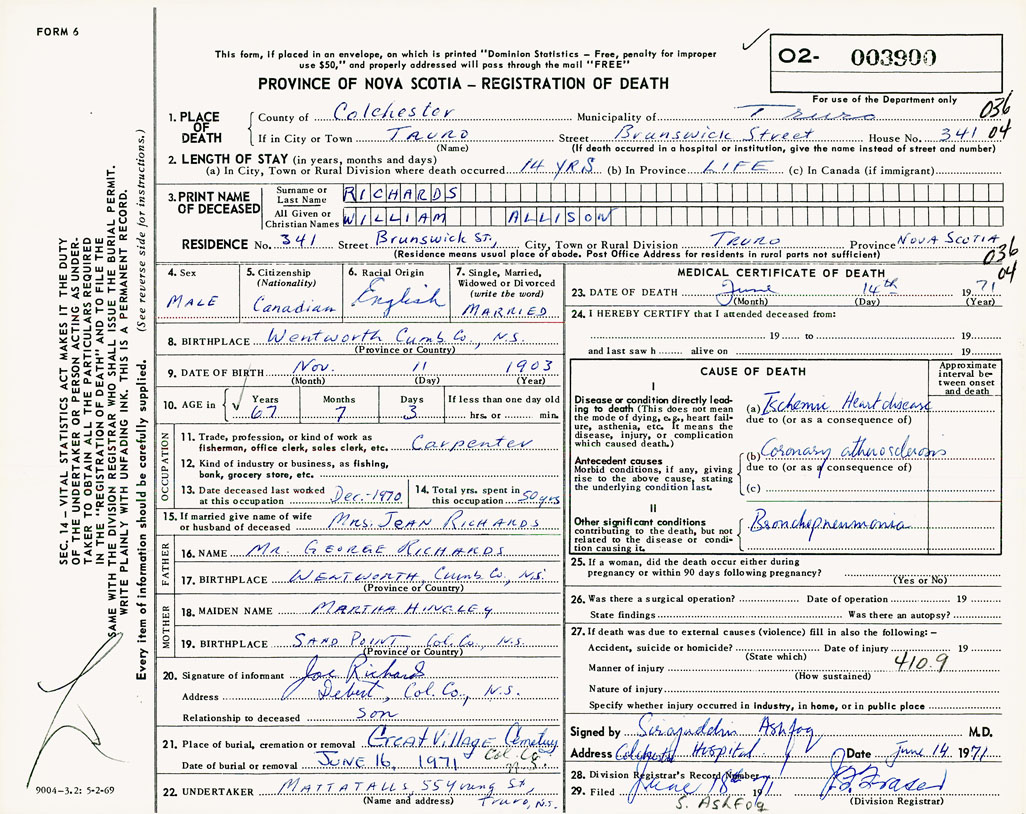 FORM 6
This form, if placed in an envelope, on which is printed "Dominion Statistics – Free, penalty for improper
use $50," and properly addressed will pass through the mail "FREE"
PROVINCE OF NOVA SCOTIA – REGISTRATION OF DEATH
O2- 003900
For use of the Department only
036
04
1. PLACE OF DEATH
County of Colchester Municipality of Truro
If in City or Town TRURO Street Brunswick Street House No. 341
(Name) (If death occurred in a hospital or institution, give the name instead of street and number)
2. LENGTH OF STAY (in years, months and days)
(a) In City, Town or Rural Division where death occurred 14 YRS (b) In Province LIFE (c) In Canada (if immigrant)
3. PRINT NAME OF DECEASED
Surname or Last Name RICHARDS
All Given or Christian Names WILLIAM ALLISON
RESIDENCE No. 341 Street Brunswick St., City, Town or Rural Division TRURO Province NOVA SCOTIA
(Residence means usual place of abode. Post Office Address for residents in rural parts not sufficient)
036
04
4. Sex
MALE
5. Citizenship
(Nationality)
Canadian
6. Racial Origin
English
7. Single, Married,
Widowed or Divorced
(write the word)
MARRIED
8. BIRTHPLACE Wentworth Cumb. Co., N.S.
(Province or Country)
9. DATE OF BIRTH Nov. 11 1903
(Month) (Day) (Year)
10. AGE in
Years Months Days If less than one day old
67 7 3 hrs. or min.
OCCUPATION
11. Trade, profession, or kind of work as
fisherman, office clerk, sales clerk, etc. Carpenter
12. Kind of industry or business, as fishing,
bank, grocery store, etc.
13. Date deceased last worked
at this occupation Dec.-1970
14. Total yrs. spent in
this occupation 50 yrs
15. If married give name of wife
or husband of deceased MRS. JEAN RICHARDS
FATHER
16. NAME MR. GEORGE RICHARDS
17. BIRTHPLACE WENTWORTH, Cumb. Co., N.S.
(Province or Country)
MOTHER
18. MAIDEN NAME MARTHA HINGLEY
19. BIRTHPLACE SAND POINT Col. Co., N.S.
(Province or Country)
20. Signature of informant Joe Richards
Address Debert, Col. Co., N.S.
Relationship to deceased son
21. Place of burial, cremation or removal Great Village Cemetery
Col. Co.
N.S.
Date of burial or removal JUNE 16, 1971
22. UNDERTAKER MATTATALLS, 55 Young St,
(Name and address) Truro, N.S.
MEDICAL CERTIFICATE OF DEATH
23. DATE OF DEATH June 14th 1971
(Month) (Day) (Year)
24. I HEREBY CERTIFY that I attended deceased from:
19 to 19
and last saw h alive on 19
CAUSE OF DEATH
Approximate
interval be-
tween onset
and death
I
Disease or condition directly lead-
ing to death (This does not mean
the mode of dying, e.g., heart fail-
ure, asthenia, etc. It means the
disease, injury, or complication
which caused death.)
(a) Ischemic Heart disease
due to (or as a consequence of)
Antecedent causes
Morbid conditions, if any, giving
rise to the above cause, stating
the underlying condition last.
(b) Coronary atherosclerosis
due to (or as a consequence of)
(c)
II
Other significant conditions
contributing to the death, but not
related to the disease or condi-
tion causing it.
Bronchopneumonia
25. If a woman, did the death occur either during
pregnancy or within 90 days following pregnancy?
(Yes or No)
26. Was there a surgical operation? Date of operation 19
State findings Was there an autopsy?
27. If death was due to external causes (violence) fill in also the following: –
Accident, suicide or homicide? Date of injury 19
(State which)
410.9
Manner of injury
(How sustained)
Nature of injury
Specify whether injury occurred in industry, in home, or in public place
Signed by Sirajuddin Ashfoq M.D.
Address Colchester Hospital Date June 14 1971
28. Division Registrar's Record Number
29. Filed June 18 1971 J. F. Fraser
S. Ashfoq (Division Registrar)
9004-3.2: 5-2-69
SEC. 14 — VITAL STATISTICS ACT MAKES IT THE DUTY
OF THE UNDERTAKER OR PERSON ACTING AS UNDER-
TAKER TO OBTAIN ALL THE PARTICULARS REQUIRED
IN THE "REGISTRATION OF DEATH" AND TO FILE THE
SAME WITH THE DIVISION REGISTRAR WHO SHALL ISSUE THE BURIAL PERMIT.
WRITE PLAINLY WITH UNFADING INK. THIS IS A PERMANENT RECORD.
Every item of information should be carefully supplied. (See reverse side for instructions.)